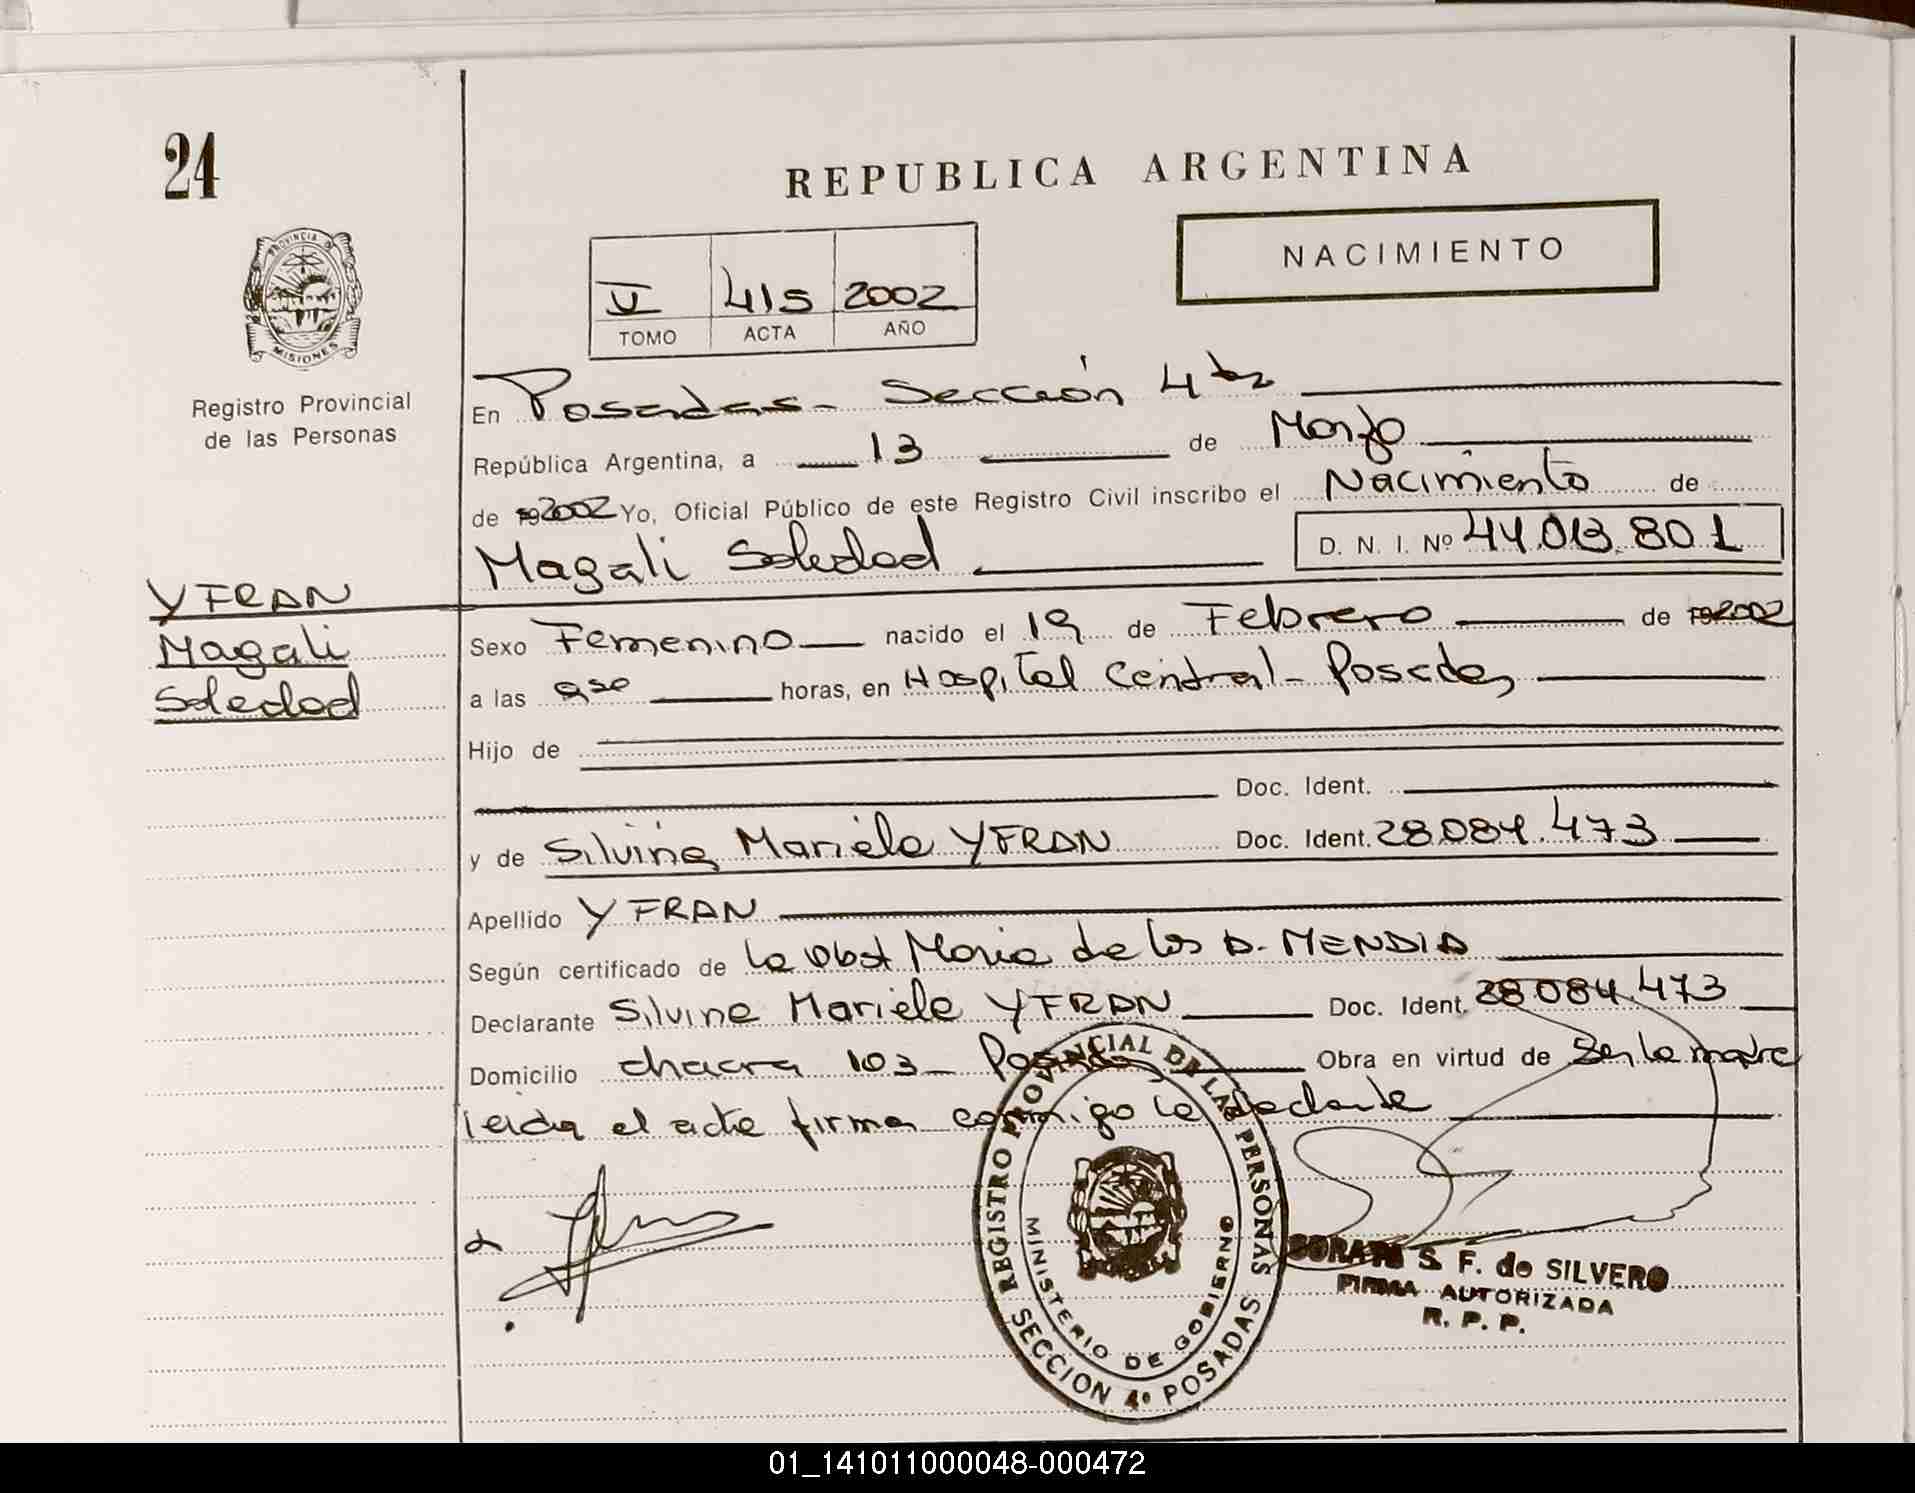 24
REPUBLICA ARGENTINA
NACIMIENTO
V 415 2002
TOMO ACTA AÑO
PROVINCIA DE MISIONES
Registro Provincial
de las Personas
En Posadas - Sección 4ta
República Argentina, a 13 de Marzo
de 192002 Yo, Oficial Público de este Registro Civil inscribo el Nacimiento de
Magali Soledad D. N. I. Nº 44.013.801
YFRAN
Magali
Soledad
Sexo Femenino nacido el 19 de Febrero de 192002
a las 950 horas, en Hospital Central - Posadas
Hijo de
Doc. Ident.
y de Silvina Mariela YFRAN Doc. Ident. 28.084.473
Apellido YFRAN
Según certificado de la Obst Maria de los A. MENDIA
Declarante Silvina Mariela YFRAN Doc. Ident. 28.084.473
Domicilio chacra 103 - Posadas Obra en virtud de Ser la madre
leida el acta firma conmigo la declarante
REGISTRO PROVINCIAL DE LAS PERSONAS
MINISTERIO DE GOBIERNO
SECCION 4º POSADAS
S. F. de SILVERO
FIRMA AUTORIZADA
R. P. P.
01_141011000048-000472